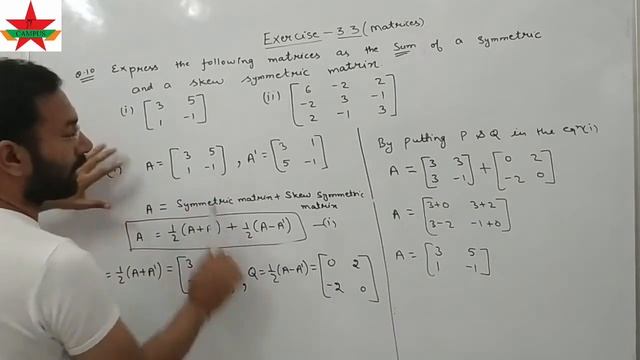 CAMPUS
Exercise - 3.3 (matrices)
Q.10 Express the following matrices as the sum of a symmetric
and a skew symmetric matrix.
(i) [3 5
1 -1] (ii) [6 -2 2
-2 3 -1
2 -1 3]
A = [3 5
1 -1], A' = [3 1
5 -1]
A = Symmetric matrix + Skew Symmetric
matrix
A = ½(A+ ) + ½(A-A') —(i)
= ½(A+A') = [3
, Q = ½(A-A') = [0 2
-2 0]
By putting P & Q in the eqⁿ(i)
A = [3 3
3 -1] + [0 2
-2 0]
A = [3+0 3+2
3-2 -1+0]
A = [3 5
1 -1]